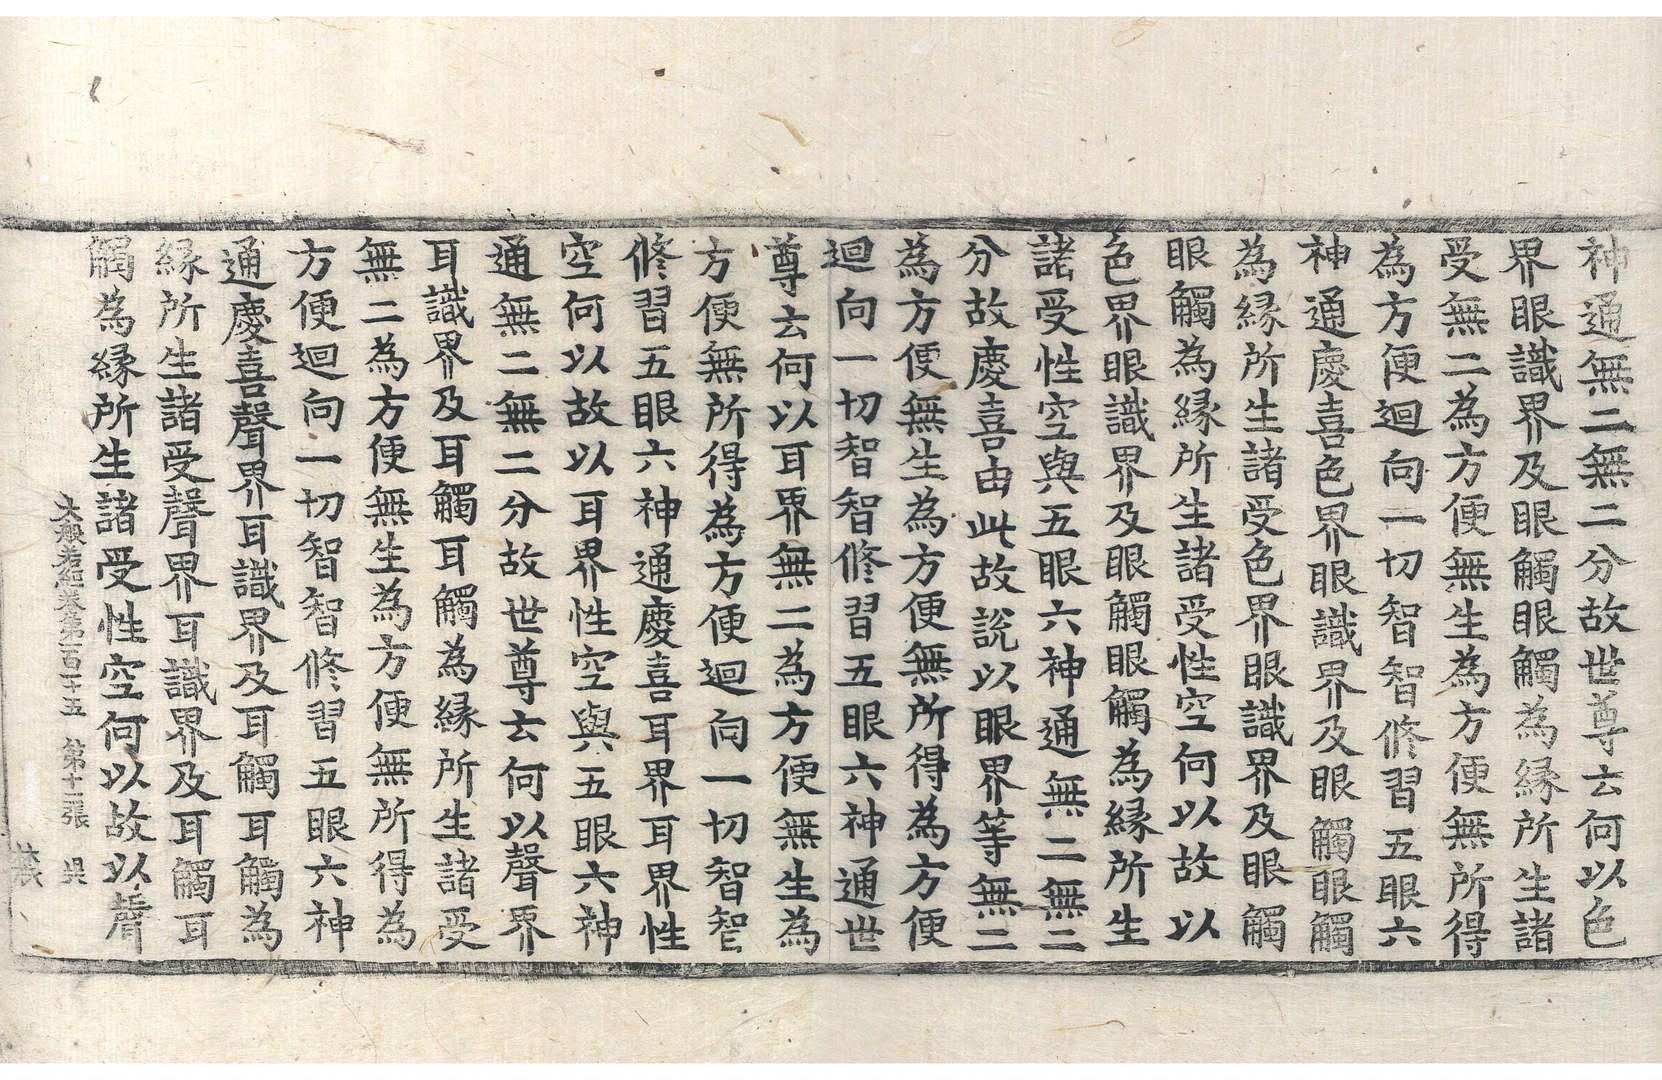 神通無二無二分故世尊云何以色
界眼識界及眼觸眼觸為緣所生諸
受無二為方便無生為方便無所得
為方便迴向一切智智修習五眼六
神通慶喜色界眼識界及眼觸眼觸
為緣所生諸受色界眼識界及眼觸
眼觸為緣所生諸受性空何以故以
色界眼識界及眼觸眼觸為緣所生
諸受性空與五眼六神通無二無二
分故慶喜由此故說以眼界等無二
為方便無生為方便無所得為方便
迴向一切智智修習五眼六神通世
尊云何以耳界無二為方便無生為
方便無所得為方便迴向一切智智
修習五眼六神通慶喜耳界耳界性
空何以故以耳界性空與五眼六神
通無二無二分故世尊云何以聲界
耳識界及耳觸耳觸為緣所生諸受
無二為方便無生為方便無所得為
方便迴向一切智智修習五眼六神
通慶喜聲界耳識界及耳觸耳觸為
緣所生諸受聲界耳識界及耳觸耳
觸為緣所生諸受性空何以故以聲
大般若經卷第一百一十五 昃